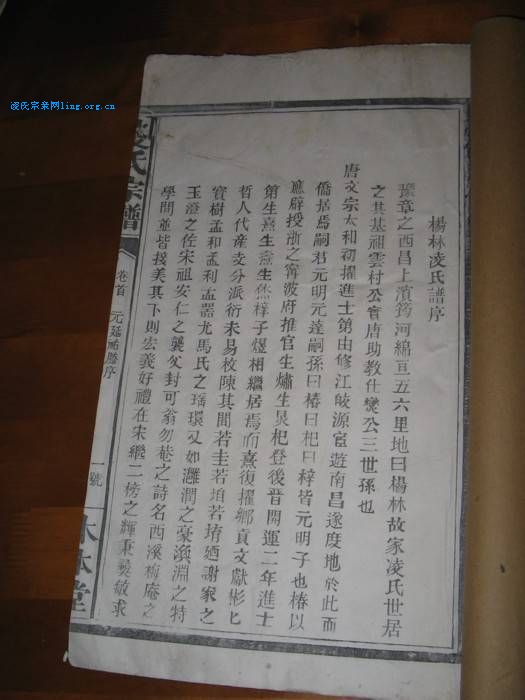 凌氏宗亲网ling.org.cn
楊林凌氏譜序
豫章之西昌上濱筠河綿亘五六里地曰楊林故家凌氏世居
之其基祖雲村公實唐助教仕爕公三世孫也
唐文宗太和初擢進士第由修江峻源宦遊南昌遂度地於此而
僑居焉嗣君元明元達嗣孫曰椿曰杞曰梓皆元明子也椿以
應辟授浙之寧波府推官生熽生炅杞登後晉開運二年進士
第生熹生燾生然梓子煜相繼居焉而熹復擢鄉貢文獻彬匕
哲人代產支分派衍未易枚陳其間若圭若垍若堉廼謝家之
寶樹孟和孟利孟器尤馬氏之瑶環又如濰澗之豪渙淵之特
玉澄之佐宋祖安仁之襲父封可翁勿菴之詩名西溪梅庵之
學問並皆接美其下則宏義好禮在宋繼二榜之輝秉彝敏求
氏宗譜
卷首
元延祐滕序
一號
木本堂